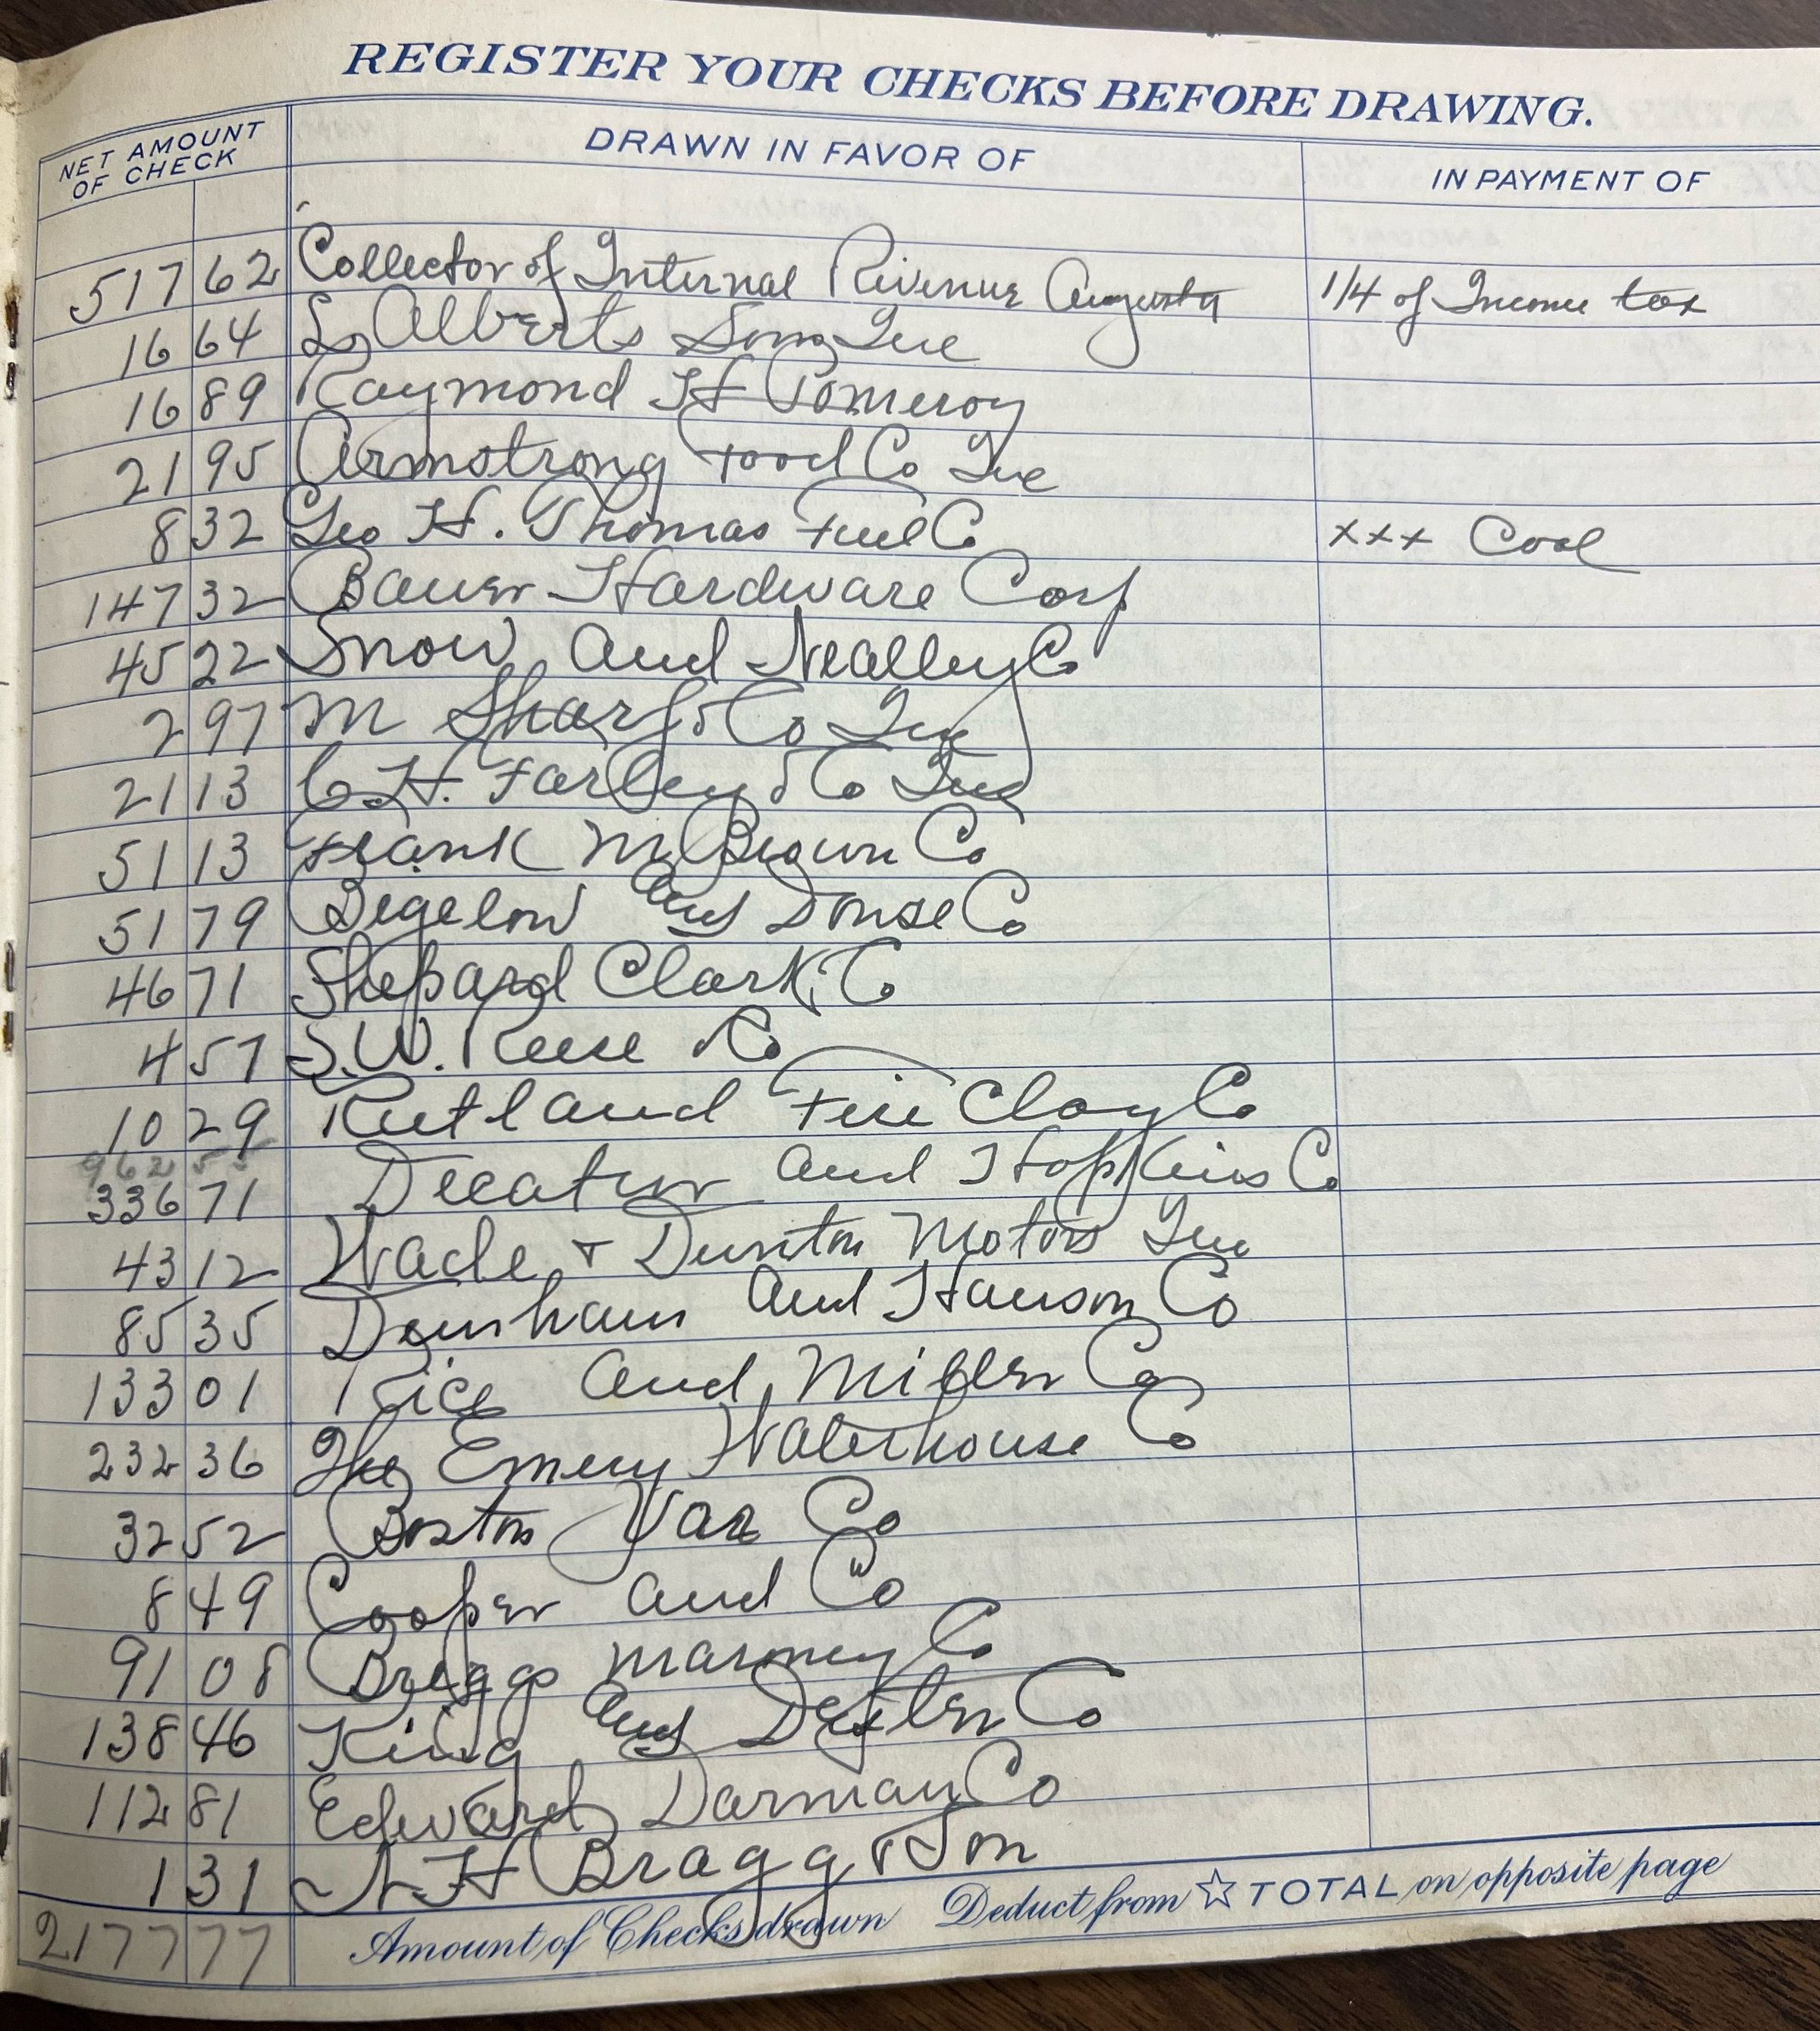 REGISTER YOUR CHECKS BEFORE DRAWING.
NET AMOUNT OF CHECK DRAWN IN FAVOR OF IN PAYMENT OF
517 62 Collector of Internal Revenue Augusta 1/4 of Income tax
16 64 L Alberts Sons Inc
16 89 Raymond H Pomeroy
21 95 Armstrong Food Co Inc
8 32 Geo H. Thomas Fuel Co xxx Coal
147 32 Bauer Hardware Corp
45 22 Snow and Nealley Co
2 97 M Sharf & Co Inc
21 13 C H. Farley & Co Inc
51 13 Frank M Brown Co
51 79 Bigelow and Dowse Co
46 71 Shepard Clark Co
4 57 S.W. Reese Co
10 29 Rutland Fire Clay Co
962 55
336 71 Decatur and Hopkins Co
43 12 Wade & Dunton Motors Inc
85 35 Dunham and Hanson Co
133 01 Rice and Miller Co
232 36 The Emery Waterhouse Co
32 52 Boston Var Co
8 49 Cooper and Co
91 08 Briggs Maroney Co
138 46 King and Dexter Co
112 81 Edward Darman Co
1 31 N H Bragg & Son
2177 77 Amount of Checks drawn Deduct from ☆ TOTAL on opposite page